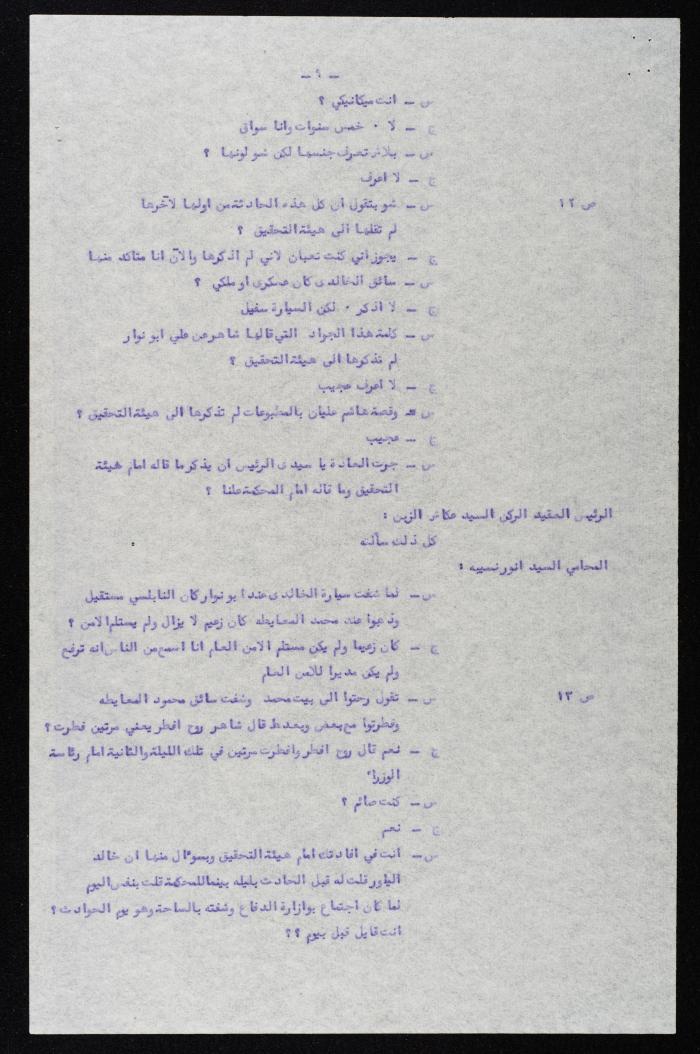 - ٩ -
س - انت ميكانيكي ؟
ج - لا ٠ خمس سنوات وانا سواق
س - بلاش تعرف جنسها لكن شو لونها ؟
ج - لا اعرف
ص ١٢ س - شو بتقول ان كل هذه الحادثة من اولها لآخرها
لم تقلها الى هيئة التحقيق ؟
ج - يجوز أني كنت تعبان لاني لم اذكرها والآن انا متاكد منها
س - سائق الخالدى كان عسكرى او ملكي ؟
ج - لا اذكر ٠ لكن السيارة سفيل
س - كلمة هذا الجواد التي قالها شاهر عن علي ابو نوار
لم تذكرها الى هيئة التحقيق ؟
ج - لا اعرف عجيب
س - وقصة هاشم عليان بالمطبوعات لم تذكرها الى هيئة التحقيق ؟
ج - عجيب
س - جرت العادة يا سيدى الرئيس ان يذكر ما قاله امام هيئة
التحقيق وما قاله امام المحكمة علنا ؟
الرئيس العقيد الركن السيد عكاش الزبن :
كل ذلك سألته
المحامي السيد انور نسيبه :
س - لما شفت سيارة الخالدى عند ابو نوار كان النابلسي مستقيل
وذهبوا عند محمد المعايطه كان زعيم لا يزال ولم يستلم الامن ؟
ج - كان زعيما ولم يكن مستلم الامن العام انا اسمع من الناس انه ترفع
ولم يكن مديرا للامن العام
ص ١٣ س - تقول رحتوا الى بيت محمد وشفت سائق محمود المعايطه
وفطرتوا مع بعض وبعدها قال شاهر روح افطر يعني مرتين فطرت ؟
ج - نعم قال روح افطر وافطرت مرتين في تلك الليلة والثانية امام رئاسة
الوزراء
س - كنت صائم ؟
ج - نعم
س - انت في افادتك امام هيئة التحقيق وبسوءال منها ان خالد
الياور قلت له قبل الحادث بليله بينما للمحكمة قلت بنفس اليوم
لما كان اجتماع بوازارة الدفاع وشفته بالساحة وهو يوم الحوادث ؟
انت قايل قبل بيوم ؟ ؟